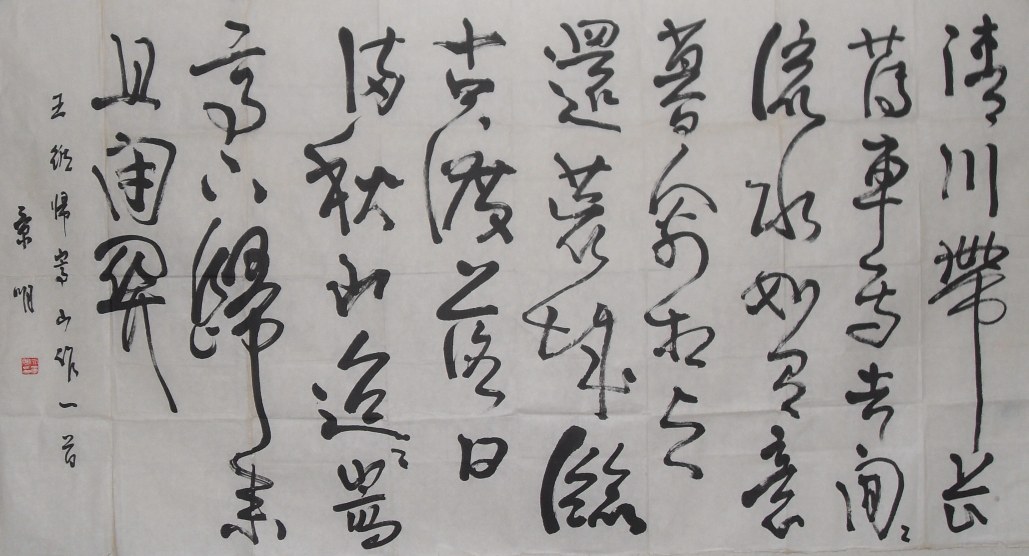 清川帶長
薄車馬去閒〻
流水如有意
暮禽相與
還荒城臨
古渡落日
滿秋山迢〻嵩
高下歸來
且閉關
王維歸嵩山作一首
景明